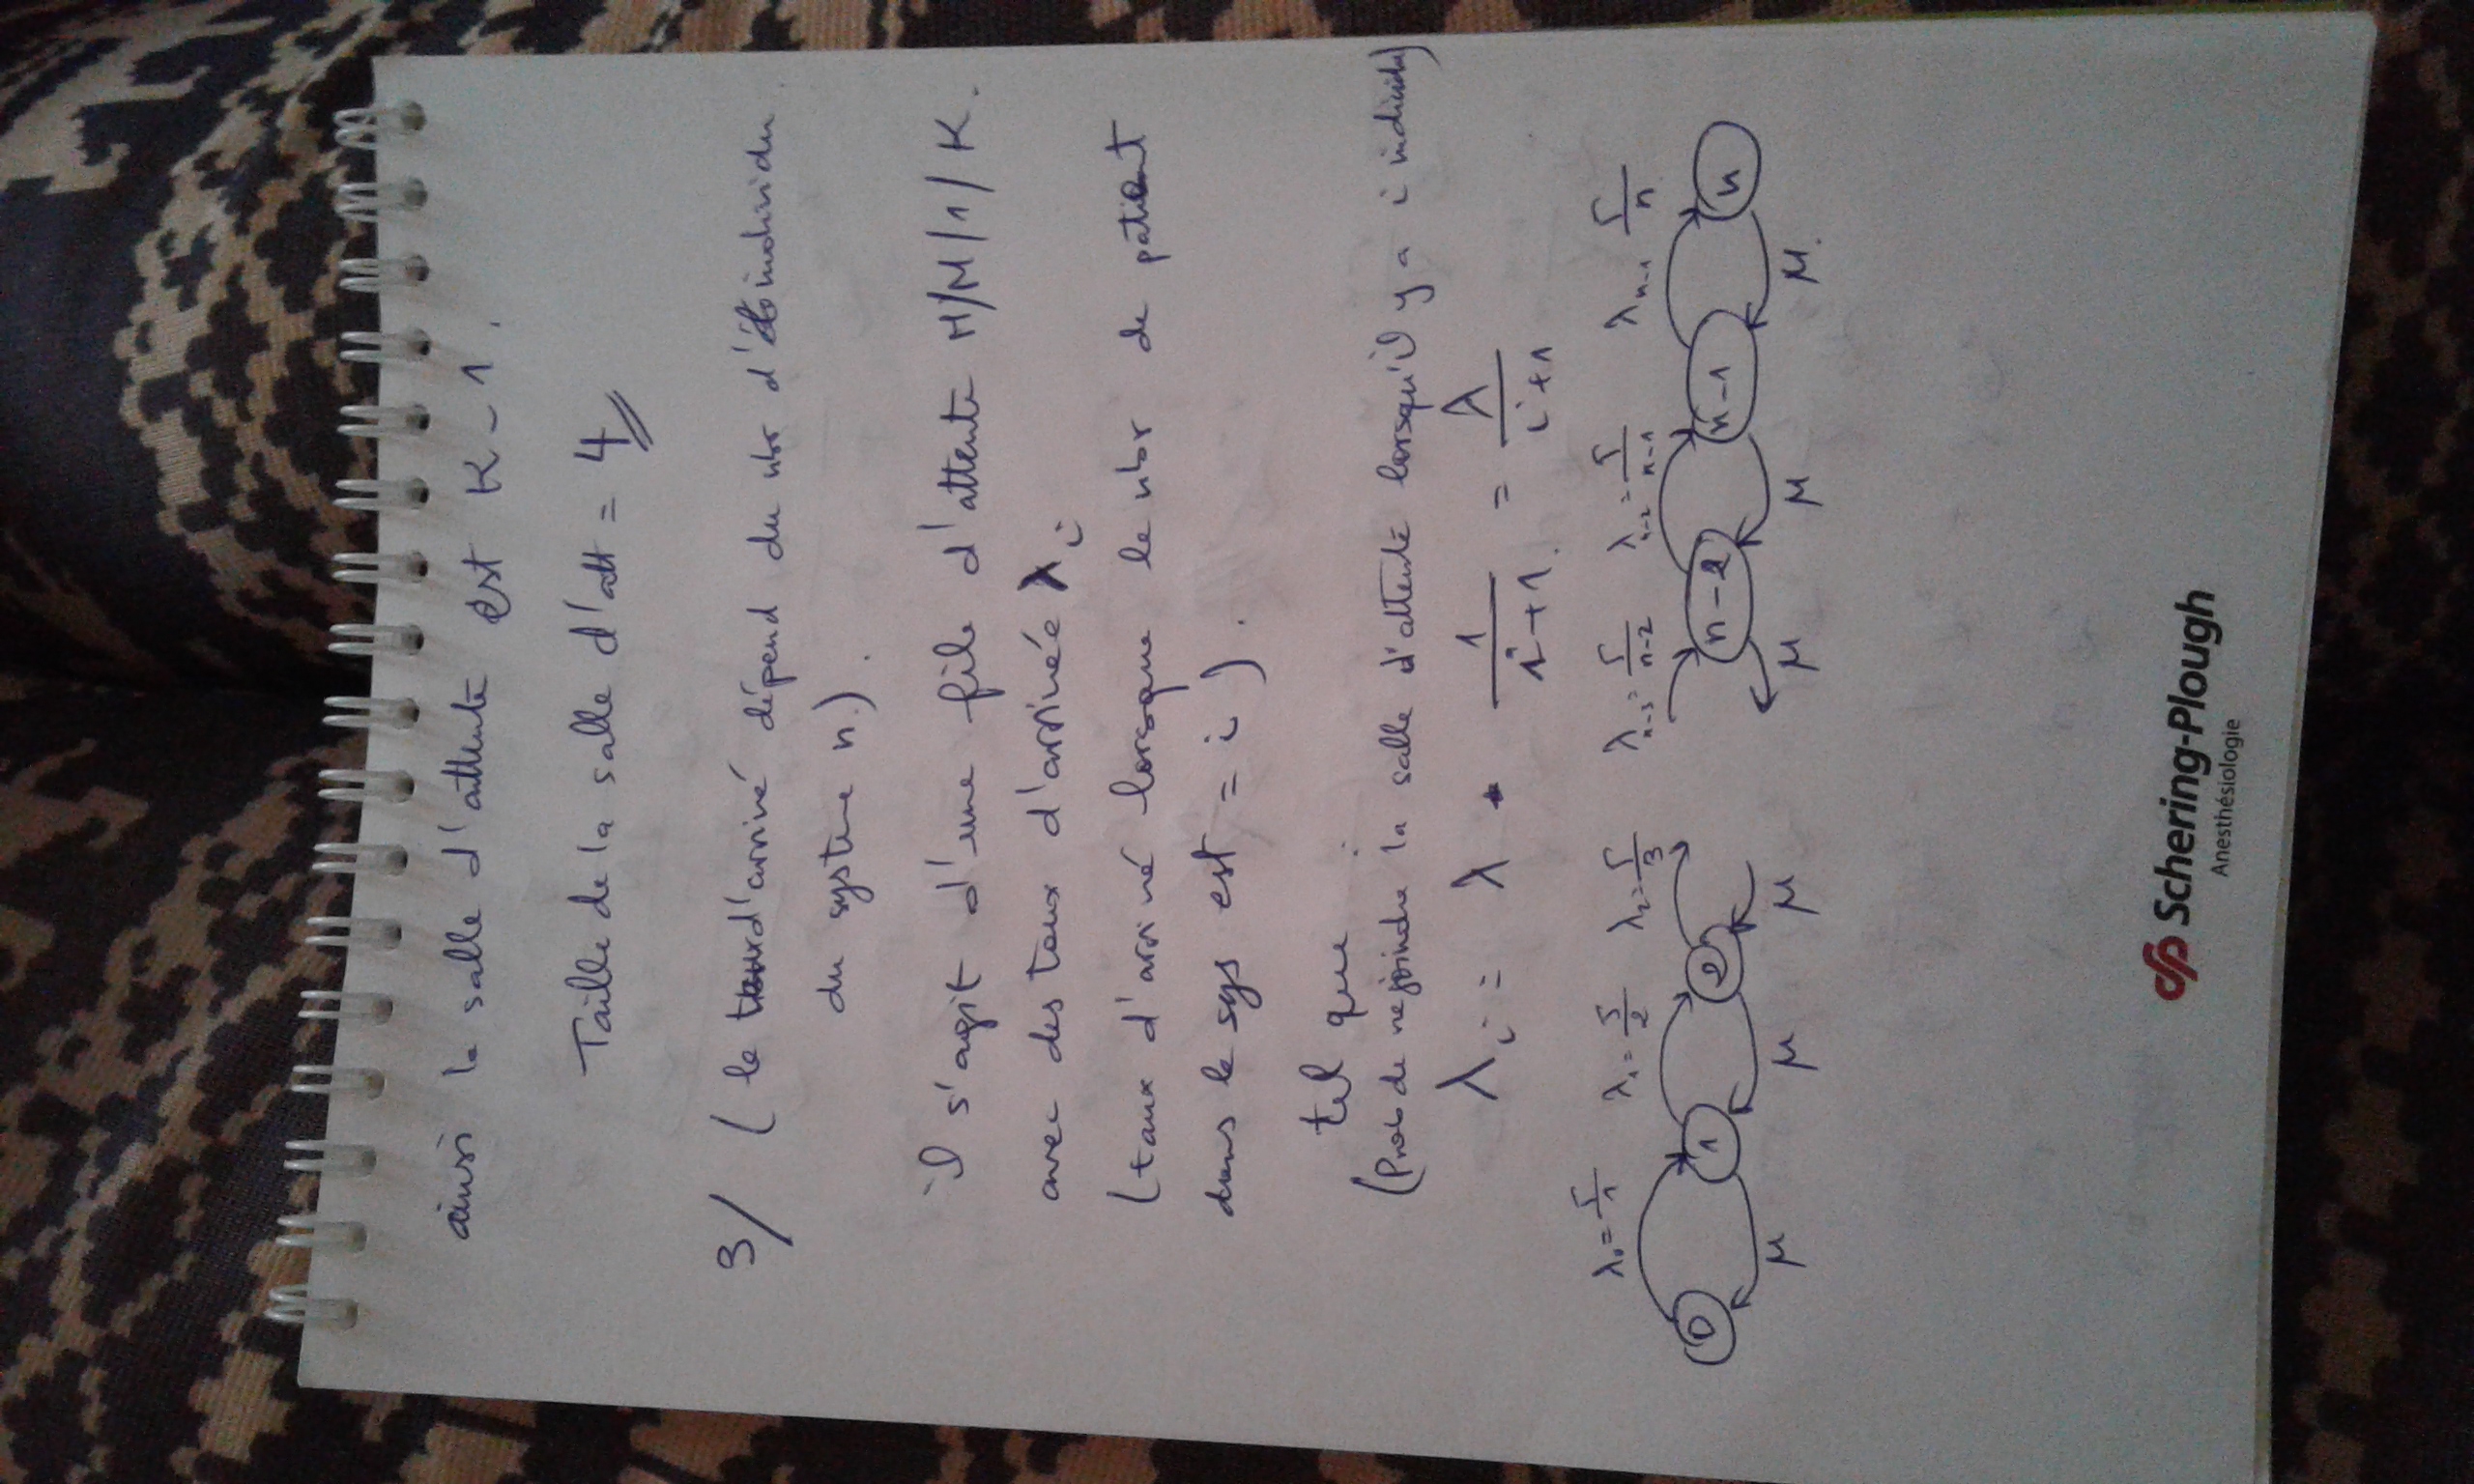 ainsi la salle d'attente est K-1.
Taille de la salle d'att = 4
3/ (le d'arrivé dépend du nbr d' individu
du systeme n.).
il s'agit d'une file d'attente M/M/1/K.
avec des taux d'arrivée λi
(taux d'arrivé lorsque le nbr de patient
dans le sys est = i).
tel que :
(Prob de rejoindre la salle d'attente lorsqu'il y a i individu)
λi = λ • 1/(i+1) = λ/(i+1)
λ0 = 5/1 λ1 = 5/2 λ2 = 5/3 λn-3 = 5/(n-2) λn-2 = 5/(n-1) λn-1 5/n
0 1 2 n-2 n-1 n
μ μ μ μ μ μ
Schering-Plough
Anesthésiologie